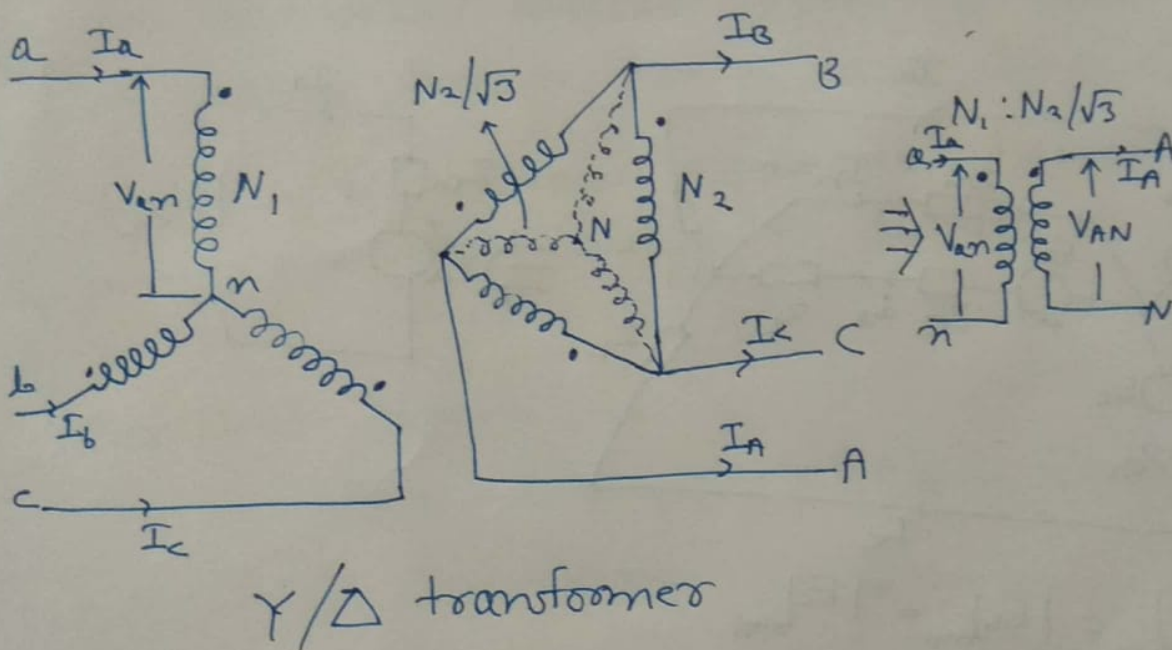 a Ia
Van N1
n
b
Ib
c
Ic
N2/√3
N
N2
IB
B
Ic C
IA
A
N1 : N2/√3
a Ia
Van
n
A
IA
VAN
N
Y/Δ transformer